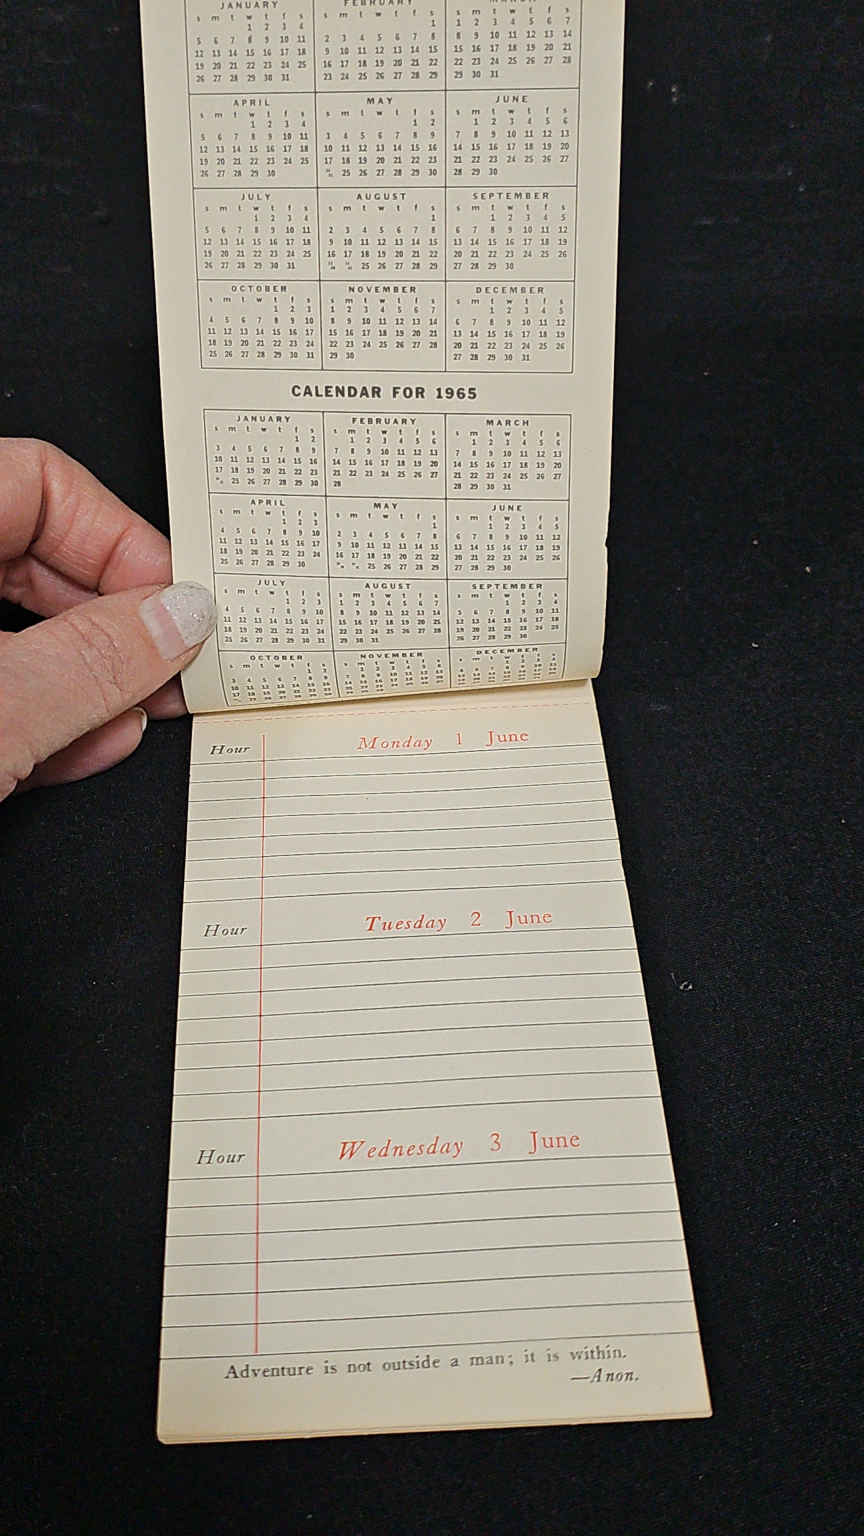 JANUARY
s m t w t f s
1 2 3 4
5 6 7 8 9 10 11
12 13 14 15 16 17 18
19 20 21 22 23 24 25
26 27 28 29 30 31
FEBRUARY
s m t w t f s
1
2 3 4 5 6 7 8
9 10 11 12 13 14 15
16 17 18 19 20 21 22
23 24 25 26 27 28 29
s m t w t f s
1 2 3 4 5 6 7
8 9 10 11 12 13 14
15 16 17 18 19 20 21
22 23 24 25 26 27 28
29 30 31
APRIL
s m t w t f s
1 2 3 4
5 6 7 8 9 10 11
12 13 14 15 16 17 18
19 20 21 22 23 24 25
26 27 28 29 30
MAY
s m t w t f s
1 2
3 4 5 6 7 8 9
10 11 12 13 14 15 16
17 18 19 20 21 22 23
25 26 27 28 29 30
JUNE
s m t w t f s
1 2 3 4 5 6
7 8 9 10 11 12 13
14 15 16 17 18 19 20
21 22 23 24 25 26 27
28 29 30
JULY
s m t w t f s
1 2 3 4
5 6 7 8 9 10 11
12 13 14 15 16 17 18
19 20 21 22 23 24 25
26 27 28 29 30 31
AUGUST
s m t w t f s
1
2 3 4 5 6 7 8
9 10 11 12 13 14 15
16 17 18 19 20 21 22
25 26 27 28 29
SEPTEMBER
s m t w t f s
1 2 3 4 5
6 7 8 9 10 11 12
13 14 15 16 17 18 19
20 21 22 23 24 25 26
27 28 29 30
OCTOBER
s m t w t f s
1 2 3
4 5 6 7 8 9 10
11 12 13 14 15 16 17
18 19 20 21 22 23 24
25 26 27 28 29 30 31
NOVEMBER
s m t w t f s
1 2 3 4 5 6 7
8 9 10 11 12 13 14
15 16 17 18 19 20 21
22 23 24 25 26 27 28
29 30
DECEMBER
s m t w t f s
1 2 3 4 5
6 7 8 9 10 11 12
13 14 15 16 17 18 19
20 21 22 23 24 25 26
27 28 29 30 31
CALENDAR FOR 1965
JANUARY
s m t w t f s
1 2
3 4 5 6 7 8 9
10 11 12 13 14 15 16
17 18 19 20 21 22 23
25 26 27 28 29 30
FEBRUARY
s m t w t f s
1 2 3 4 5 6
7 8 9 10 11 12 13
14 15 16 17 18 19 20
21 22 23 24 25 26 27
28
MARCH
s m t w t f s
1 2 3 4 5 6
7 8 9 10 11 12 13
14 15 16 17 18 19 20
21 22 23 24 25 26 27
28 29 30 31
APRIL
s m t w t f s
1 2 3
4 5 6 7 8 9 10
11 12 13 14 15 16 17
18 19 20 21 22 23 24
25 26 27 28 29 30
MAY
s m t w t f s
1
2 3 4 5 6 7 8
9 10 11 12 13 14 15
16 17 18 19 20 21 22
25 26 27 28 29
JUNE
s m t w t f s
1 2 3 4 5
6 7 8 9 10 11 12
13 14 15 16 17 18 19
20 21 22 23 24 25 26
27 28 29 30
JULY
s m t w t f s
1 2 3
4 5 6 7 8 9 10
11 12 13 14 15 16 17
18 19 20 21 22 23 24
25 26 27 28 29 30 31
AUGUST
s m t w t f s
1 2 3 4 5 6 7
8 9 10 11 12 13 14
15 16 17 18 19 20 21
22 23 24 25 26 27 28
29 30 31
SEPTEMBER
s m t w t f s
1 2 3 4
5 6 7 8 9 10 11
12 13 14 15 16 17 18
19 20 21 22 23 24 25
26 27 28 29 30
OCTOBER
s m t w t f s
1 2
3 4 5 6 7 8 9
10 11 12 13 14 15 16
NOVEMBER
s m t w t f s
1 2 3 4 5 6
7 8 9 10 11 12 13
DECEMBER
s m t w t f s
Hour Monday 1 June
Hour Tuesday 2 June
Hour Wednesday 3 June
Adventure is not outside a man; it is within.
—Anon.